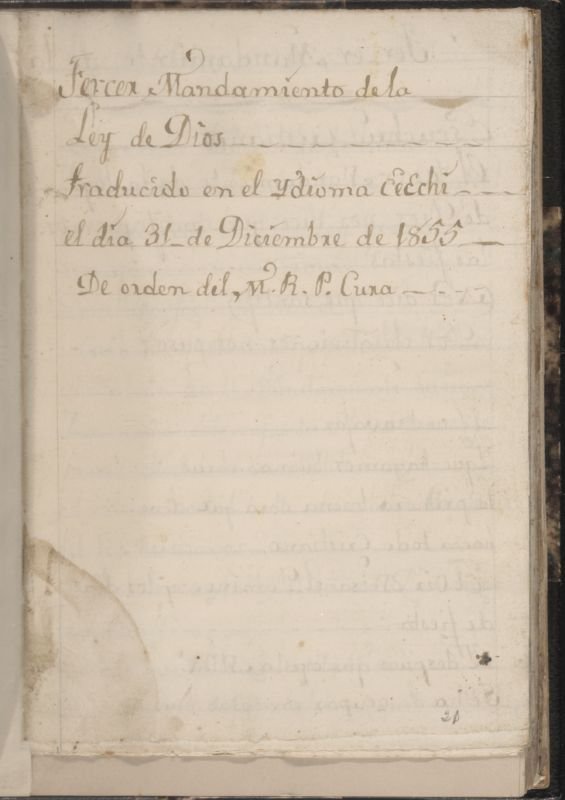 Tercer Mandamiento de la
Ley de Dios
traducido en el Ydioma CêEchi
el dia 31 de Diciembre de 1855
De orden del, M. R. P. Cura
21